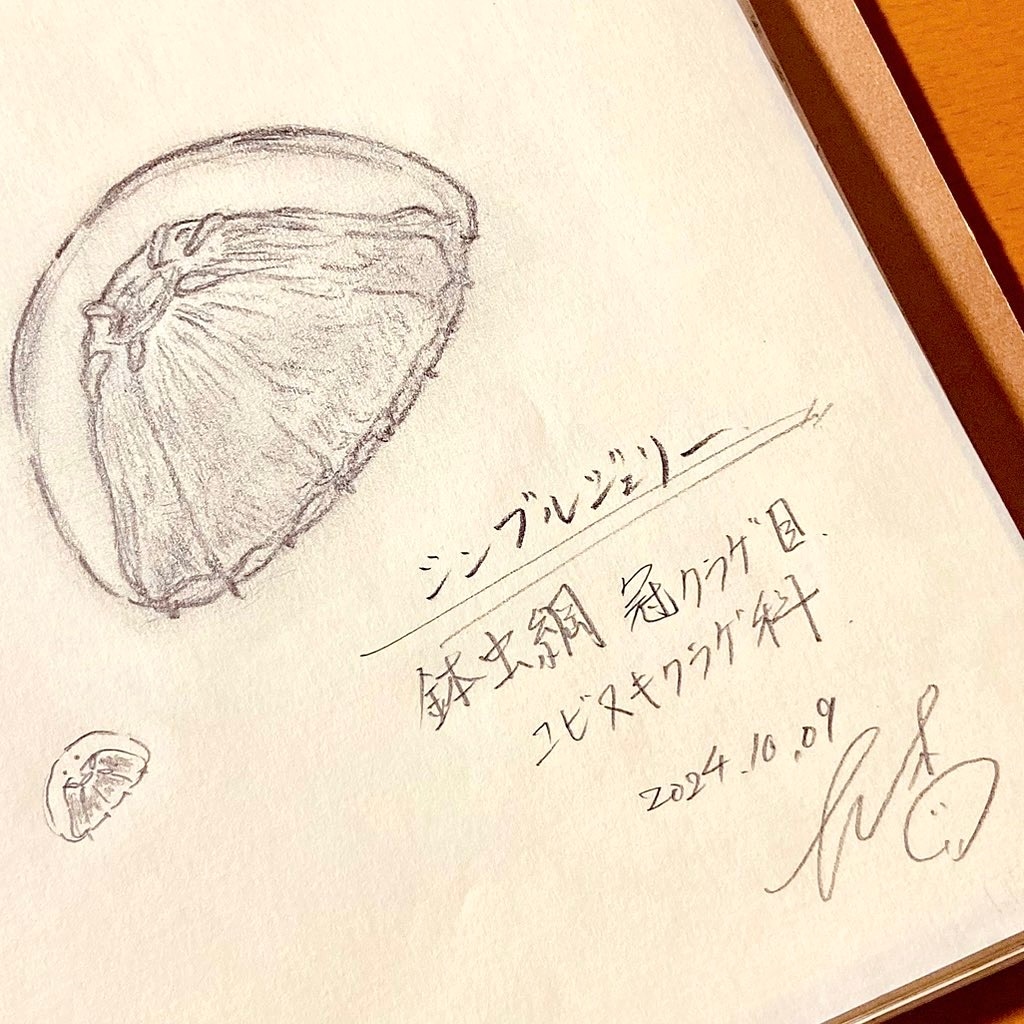 シンブルジェリー
鉢虫綱 冠クラゲ目.
ユビヌキクラゲ科.
2024.10.09